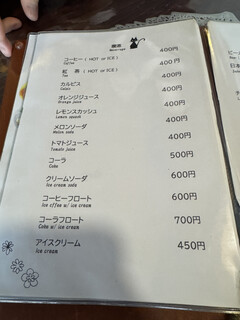 Beverage
コーヒー ( HOT or ICE ) 400円
Coffee
紅 茶 ( HOT or ICE ) 400円
Tea
カルピス 400円
Calpis
オレンジジュース 400円
Orange juice
レモンスカッシュ 400円
Lemon squash
メロンソーダ 400円
Melon soda
トマトジュース 400円
Tomato juice
コーラ 500円
Coke
クリームソーダ 600円
Ice cream soda
コーヒーフロート 600円
Ice cffee w/ ice cream
コーラフロート 700円
Coke w/ ice cream
アイスクリーム 450円
Ice cream
ビー
日本